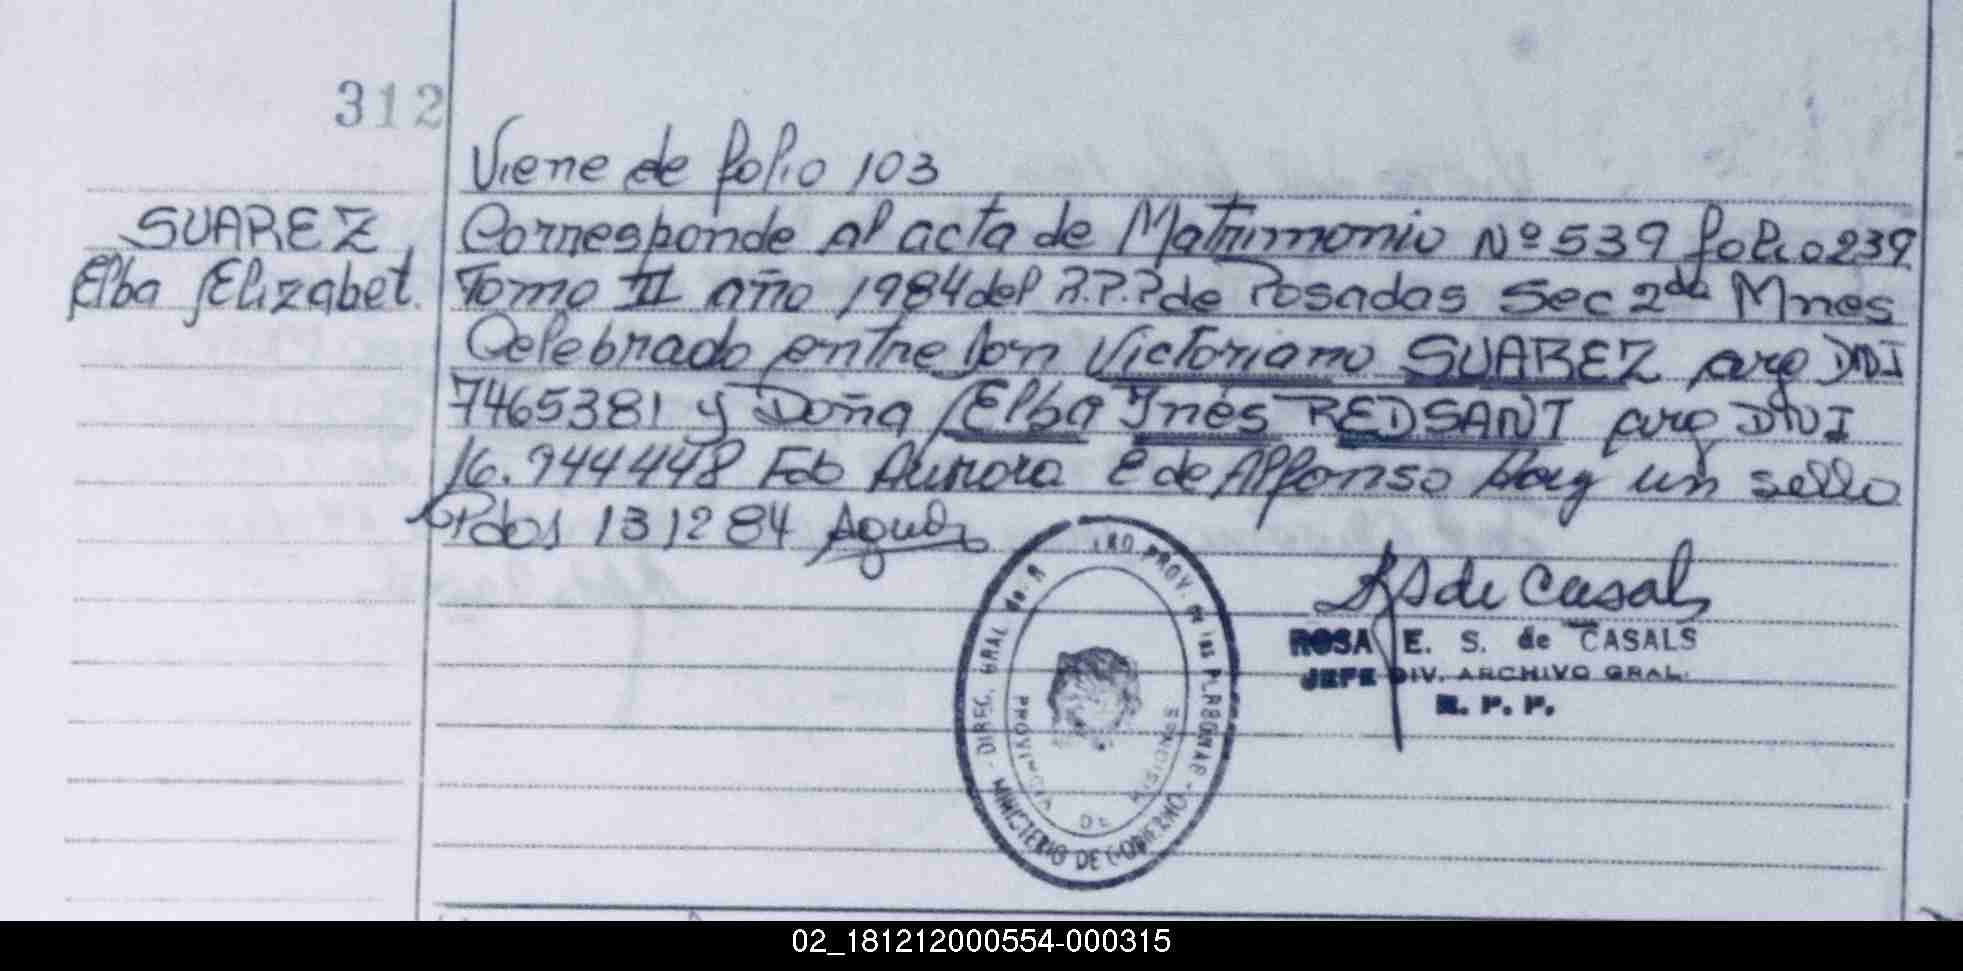 312
Viene de folio 103
SUAREZ
Elba Elizabet.
Corresponde al acta de Matrimonio Nº 539 folio 239
Tomo II año 1984 del R.P.P de Posadas Sec 2da Mnes
Celebrado entre Don Victoriano SUAREZ arg DNI
7465381 y Doña Elba Inés REDSANT arg DNI
16.944448 Fdo Aurora E de Alfonso Hay un sello
Pdas 131284
S de Casals
ROSA E. S. de CASALS
JEFE DIV. ARCHIVO GRAL.
R. P. P.
DIREC. GRAL de R PROV. de las PERSONAS
MINISTERIO DE GOBIERNO
PROVINCIA DE MISIONES
02_181212000554-000315